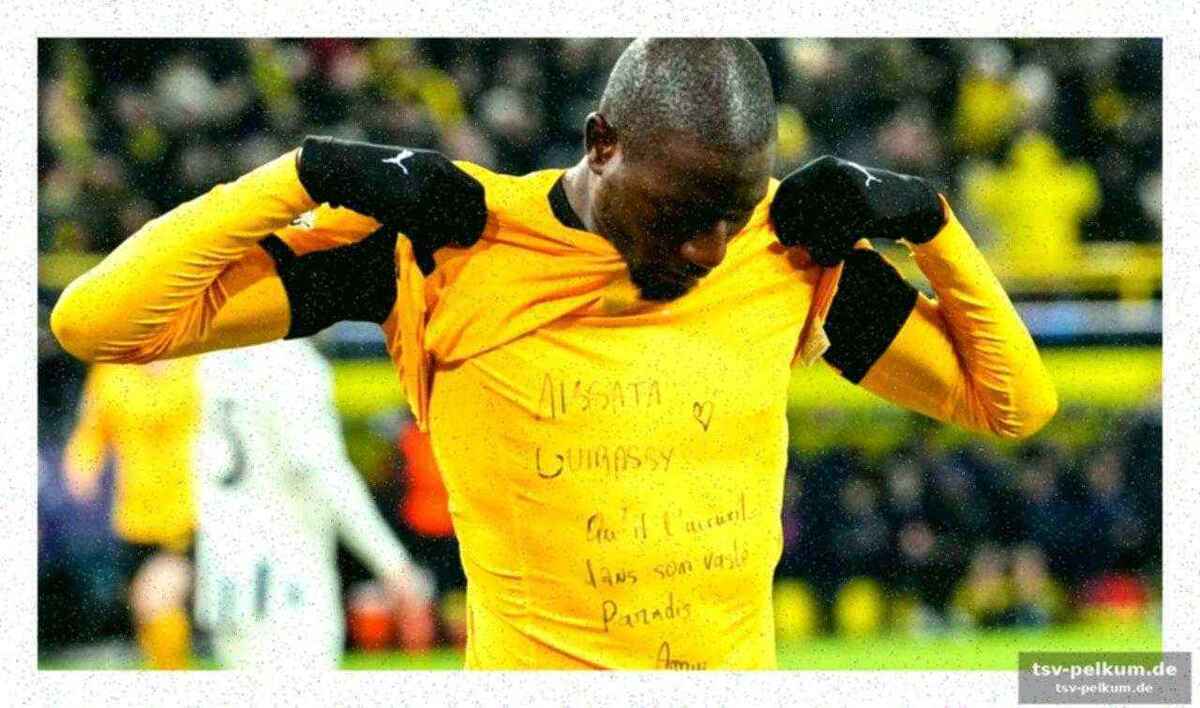 AISSATA ♡
GUIRASSY
Qu'il l'accueil
dans son vaste
Paradis
Amin
3
tsv-pelkum.de
tsv-pelkum.de